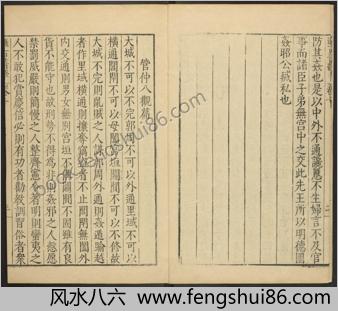 防其姦也是以中外不通讒慝不生婦言不及官
事而諸臣子弟無宮中之交此先王所以明德圉
姦邪公滅私也
管仲八觀篇
大城不可以不完郭周不可以外通里域不可以
橫通閭閈不可以毋闔宮垣關閉不可以不修故
大城不完則亂賊之人謀郭周外通則姦遁踰越
者作里域橫通則攘奪竊盜者不止閭閈無闔外
內交通則男女無別宮垣不備關閉不固雖有良
貨不能守也故形勢不得為非則姦邪之人愨愿
禁罰威嚴則簡慢之人整齊憲令著明則蠻夷之
人不敢犯賞慶信必則有功者勸教訓習俗者眾
风水八六
www.fengshui86.com